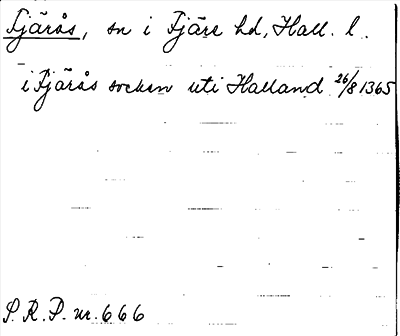 Fjärås, sn i Fjäre hd, Hall. l.
i Fjärås socken uti Halland 26/8 1365
S. R. P. nr. 666